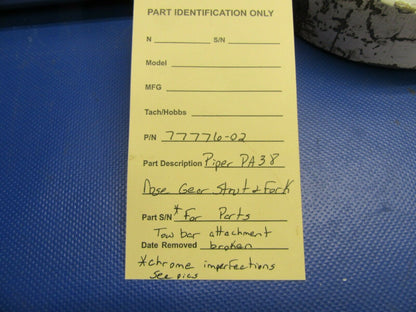 PART IDENTIFICATION ONLY
N S/N
Model
MFG
Tach/Hobbs
P/N 77776-02
Part Description Piper PA38
Nose Gear Strut & Fork
Part S/N * For Parts
Tow bar attachment
Date Removed broken
*chrome imperfections
see pics